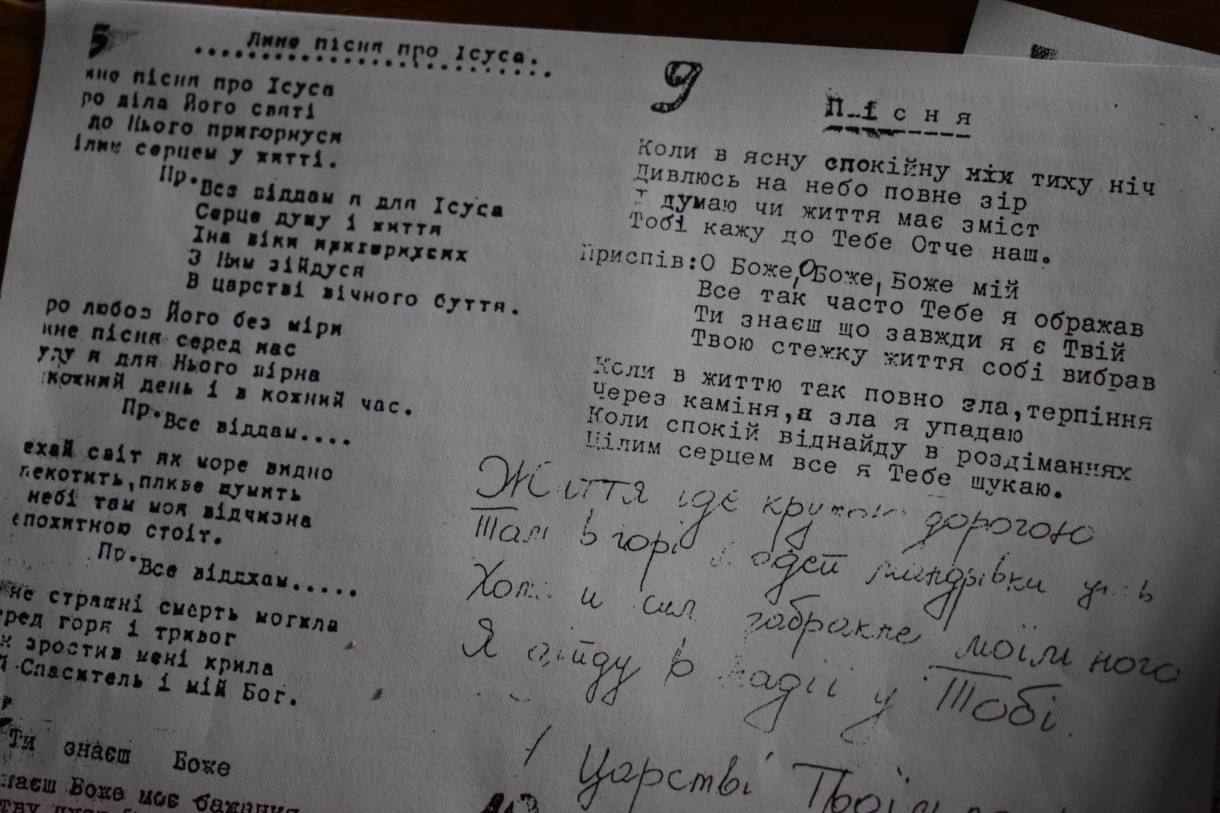 5
Лине пісня про Ісуса.
ине пісня про Ісуса
ро діла Його святі
до Нього пригорнуся
ілим серцем у житті.
Пр.Все віддам я для Ісуса
Серце душу і життя
Іна віки
З Ним зійдуся
В царстві вічного буття.
ро любов Його без міри
ине пісня серед нас
уду я для Нього вірна
кожний день і в кожний час.
Пр.Все віддам....
ехай світ як море видно
лекотить,плине шумить
небі там моя відчизна
епохитною стоїт.
Пр.Все віддхам.....
не страшні смерть могила
еред горя і тривог
зростив мені крила
й Спаситель і мій Бог.
Ти знаєш Боже
наєш Боже моє бажання
9
Пісня
Коли в ясну спокійну між тиху ніч
Дивлюсь на небо повне зір
І думаю чи життя має зміст
Тобі кажу до Тебе Отче наш.
Приспів:О Боже,О Боже, Боже мій
Все так часто Тебе я ображав
Ти знаєш що завжди я є Твій
Твою стежку життя собі вибрав
Коли в життю так повно зла,терпіння
Через каміня,я зла я упадаю
Коли спокій віднайду в роздіманнях
Цілим серцем все я Тебе шукаю.
Життя іде крутою дорогою
Там в горі мандрівки
Хоть й сил забракне моїм нога
Я дійду в надії у Тобі.
Царстві Твоїм